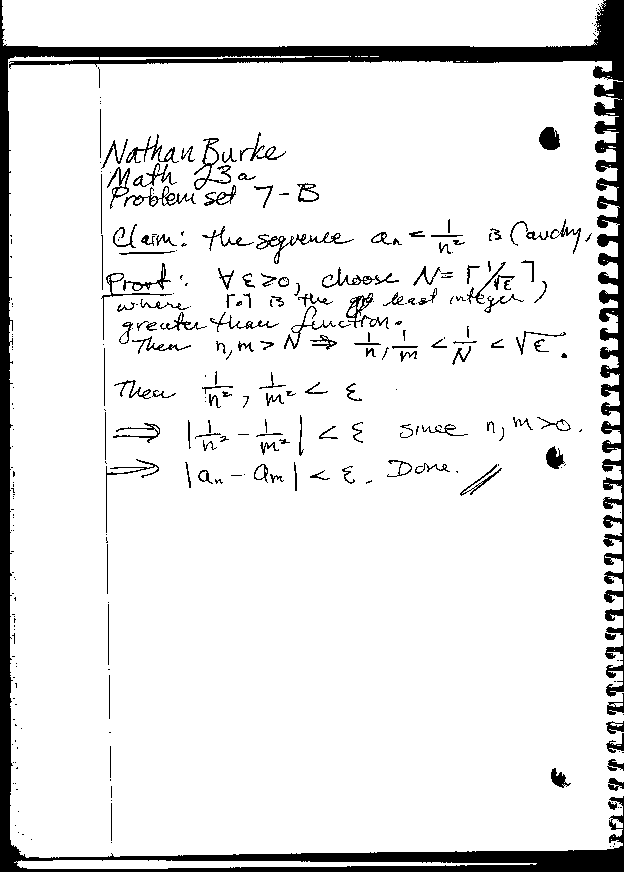 Nathan Burke
Math 23a
Problem set 7-B
Claim: the sequence aₙ = 1/n² is Cauchy.
Proof: ∀ ε>0, choose N = ⌈1/√ε⌉,
where ⌈∘⌉ is the least integer
greater than function.
Then n, m > N ⇒ 1/n, 1/m < 1/N < √ε.
Then 1/n², 1/m² < ε
⇒ |1/n² - 1/m²| < ε since n, m > 0.
⇒ |aₙ - aₘ| < ε. Done. //